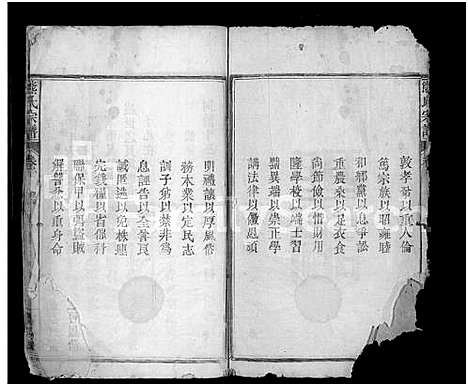 敦孝弟以重人倫
篤宗族以昭雍睦
和鄉黨以息爭訟
重農桑以足衣食
尚節儉以惜財用
隆學校以端士習
黜異端以崇正學
講法律以儆愚頑
明禮讓以厚風俗
務本業以定民志
訓子弟以禁非為
息誣告以全善良
誡匿逃以免株連
完錢糧以省催科
聯保甲以弭盜賊
解讐忿以重身命
氏宗譜
卷
氏宗譜